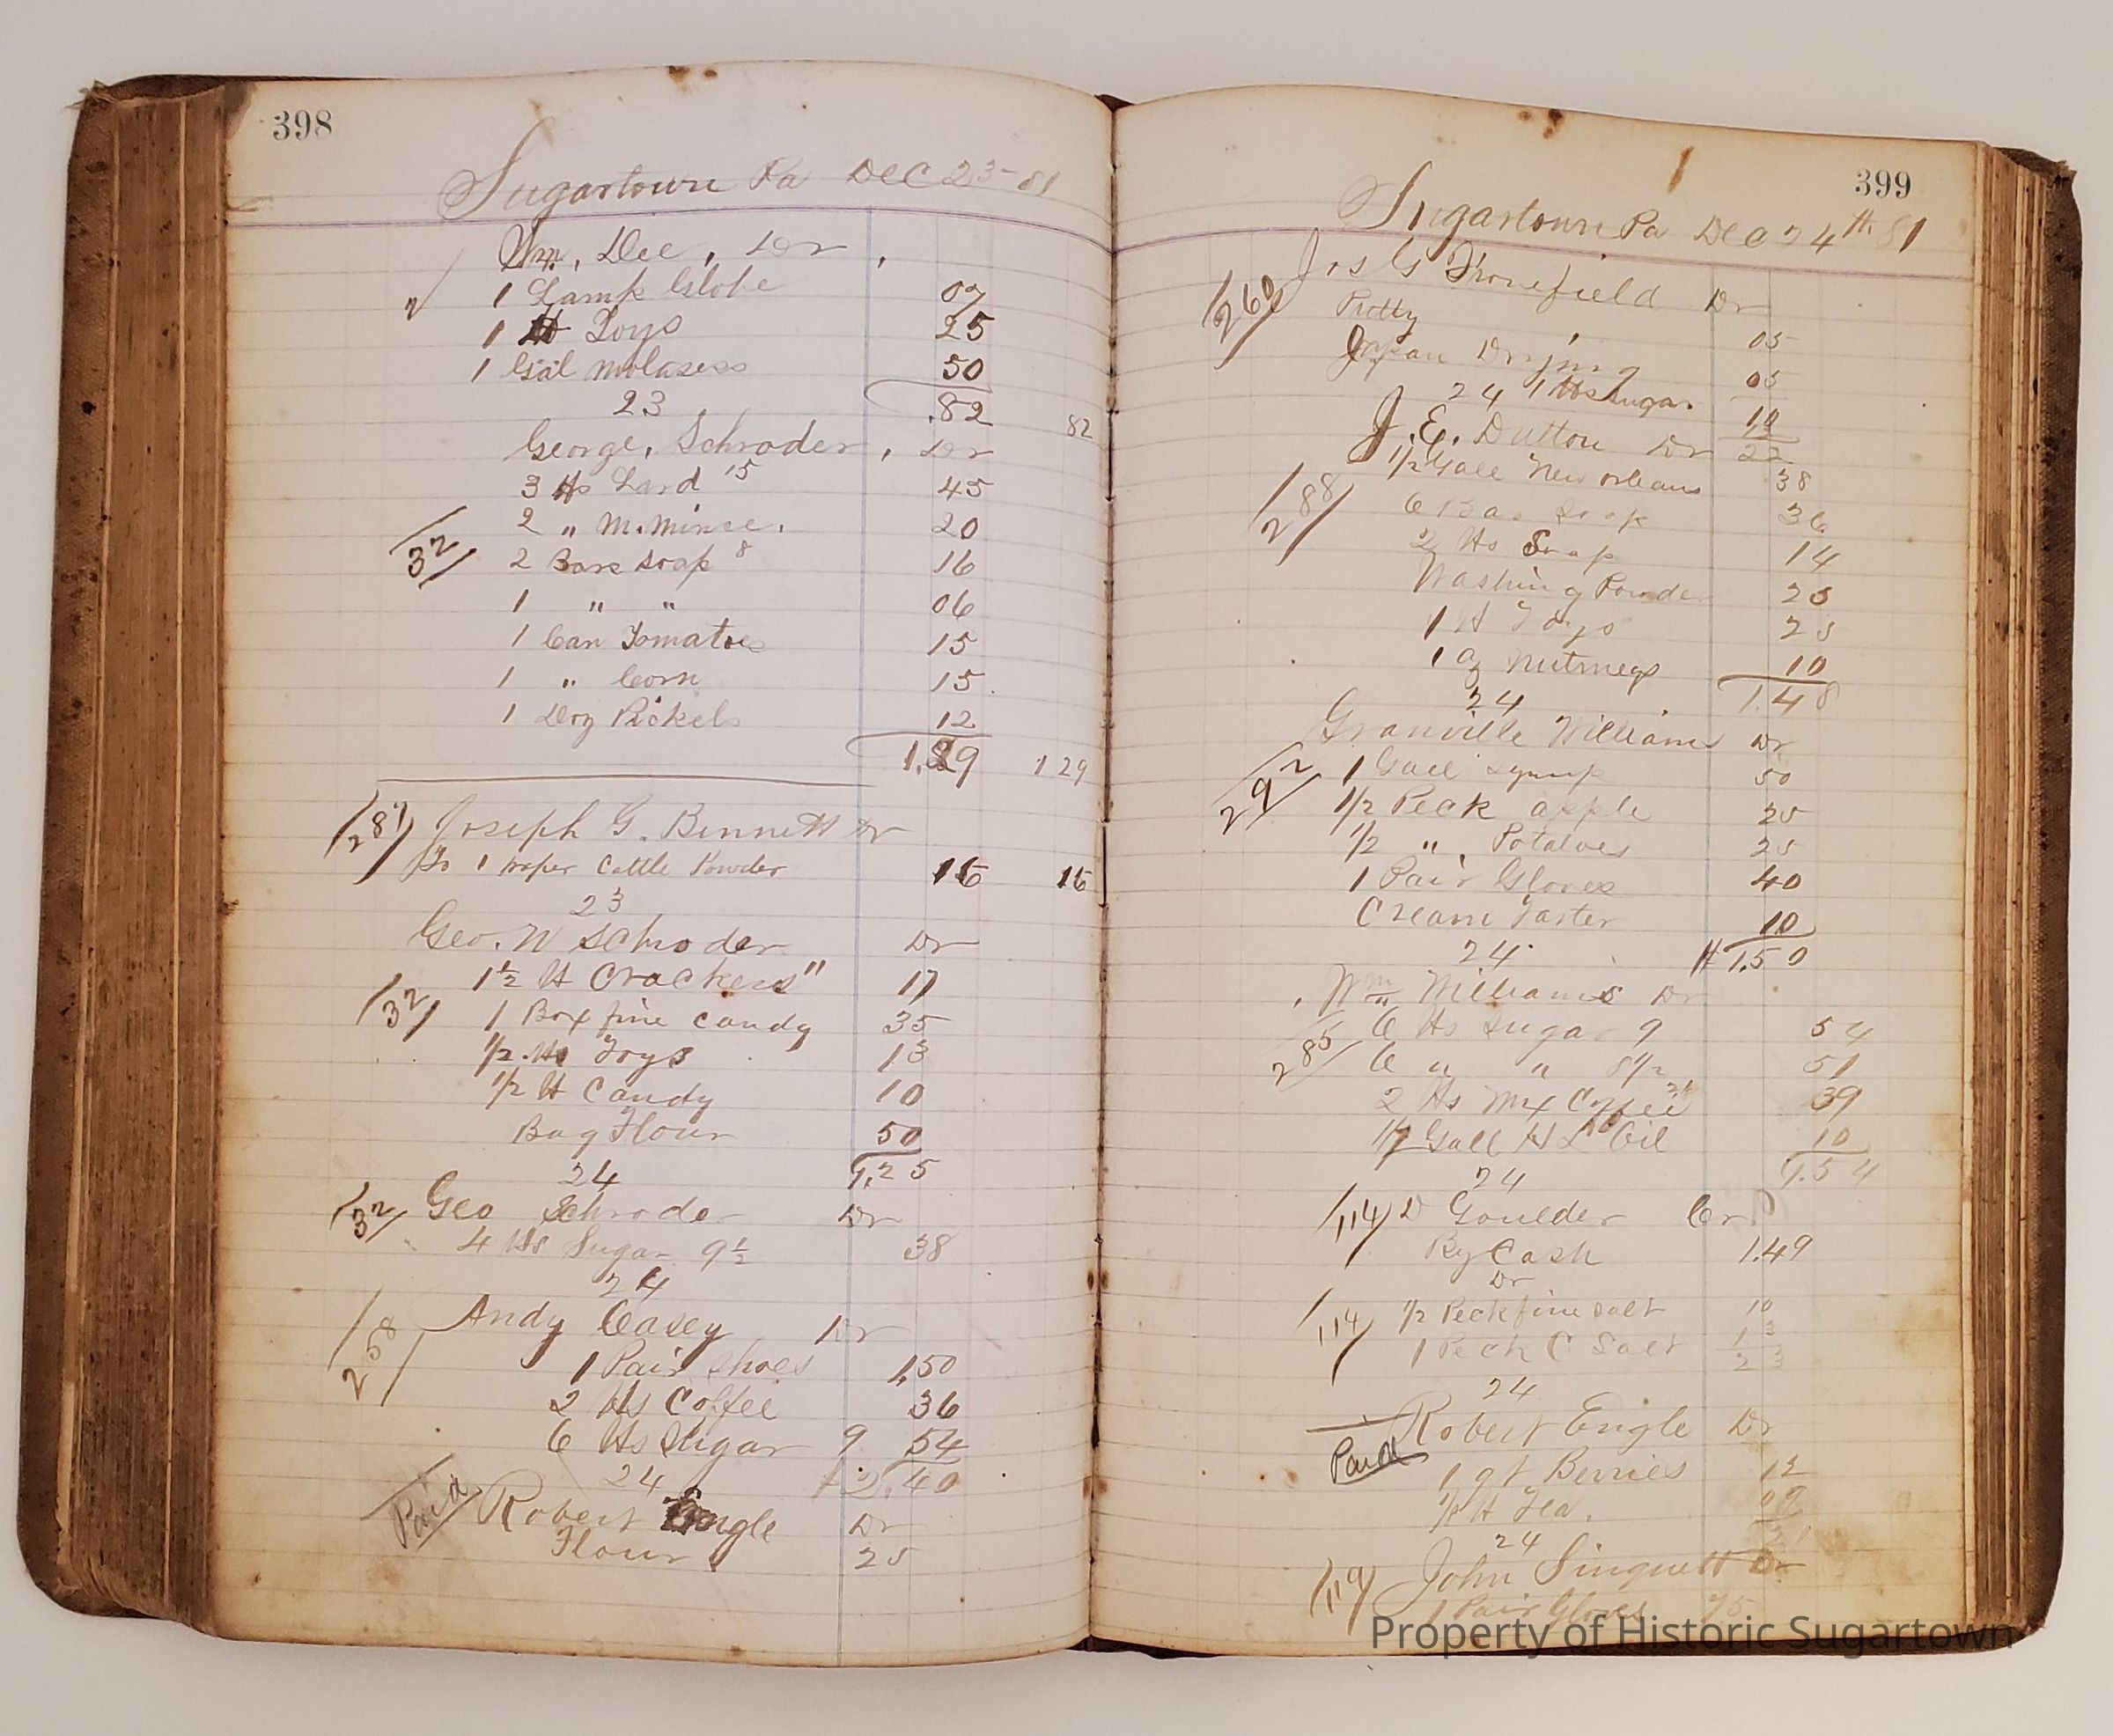 398
Sugartown Pa Dec 23-81
Wm. Dee, Dr
1 Lamp Globe 07
1 Toys 25
1 Gal molasess 50
23 .82 82
George. Schroder, Dr
3 lbs Lard 15 45
2 " M. Mince. 20
32
2 Bars soap 8 16
1 " " 06
1 Can Tomatoes 15
1 " Corn 15
1 Doz Pickels 12
1.29 1 29
287 Joseph G. Bennett Dr
To 1 paper Cattle Powder 16 16
23
Geo. W Schroder Dr
1½ lb Crackers" 17
32
1 Box fine candy 35
1/2 lbs Toys 13
1/2 lb Candy 10
Bag Flour 50
24 1.25
32 Geo Schroder Dr
4 lbs Sugar 9½ 38
24
258
Andy Casey Dr
1 Pair Shoes 1,50
2 lbs Coffee 36
6 lbs Sugar 9 54
24 2.40
Paid Robert Engle Dr
Flour 25
399
Sugartown Pa Dec 24th 81
Jos G Dr
260 Putty 05
Japan 05
24 1 lbs Sugar 12
J. E. Dutton Dr 22
1/2 Gall New orleans 38
288
6 Bar Soap 36
2 lbs Soap 14
Washing Powder 25
1 lb Toys 25
1 oz Nutmegs 10
24 1.48
Granville Williams Dr
292
1 Gall syrup 50
1/2 Peck apple 25
1/2 " Potatoes 25
1 Pair Gloves 40
Cream Tarter 10
24 1.50
Wm Williams Dr
285
6 lbs Sugar 9 54
6 " " 8 1/2 51
2 lbs Mix Coffee 39
Gall H L Oil 10
24 1.54
114 D Goulder Cr
By Cash 1.49
Dr
114 1/2 Peck fine Salt 10
1 Peck C Salt 13
23
24
Robert Engle Dr
Paid
1 qt Berries 12
lb Tea. 09
24
119 John Singuett Dr
1 Pair Gloves 75
Property of Historic Sugartown